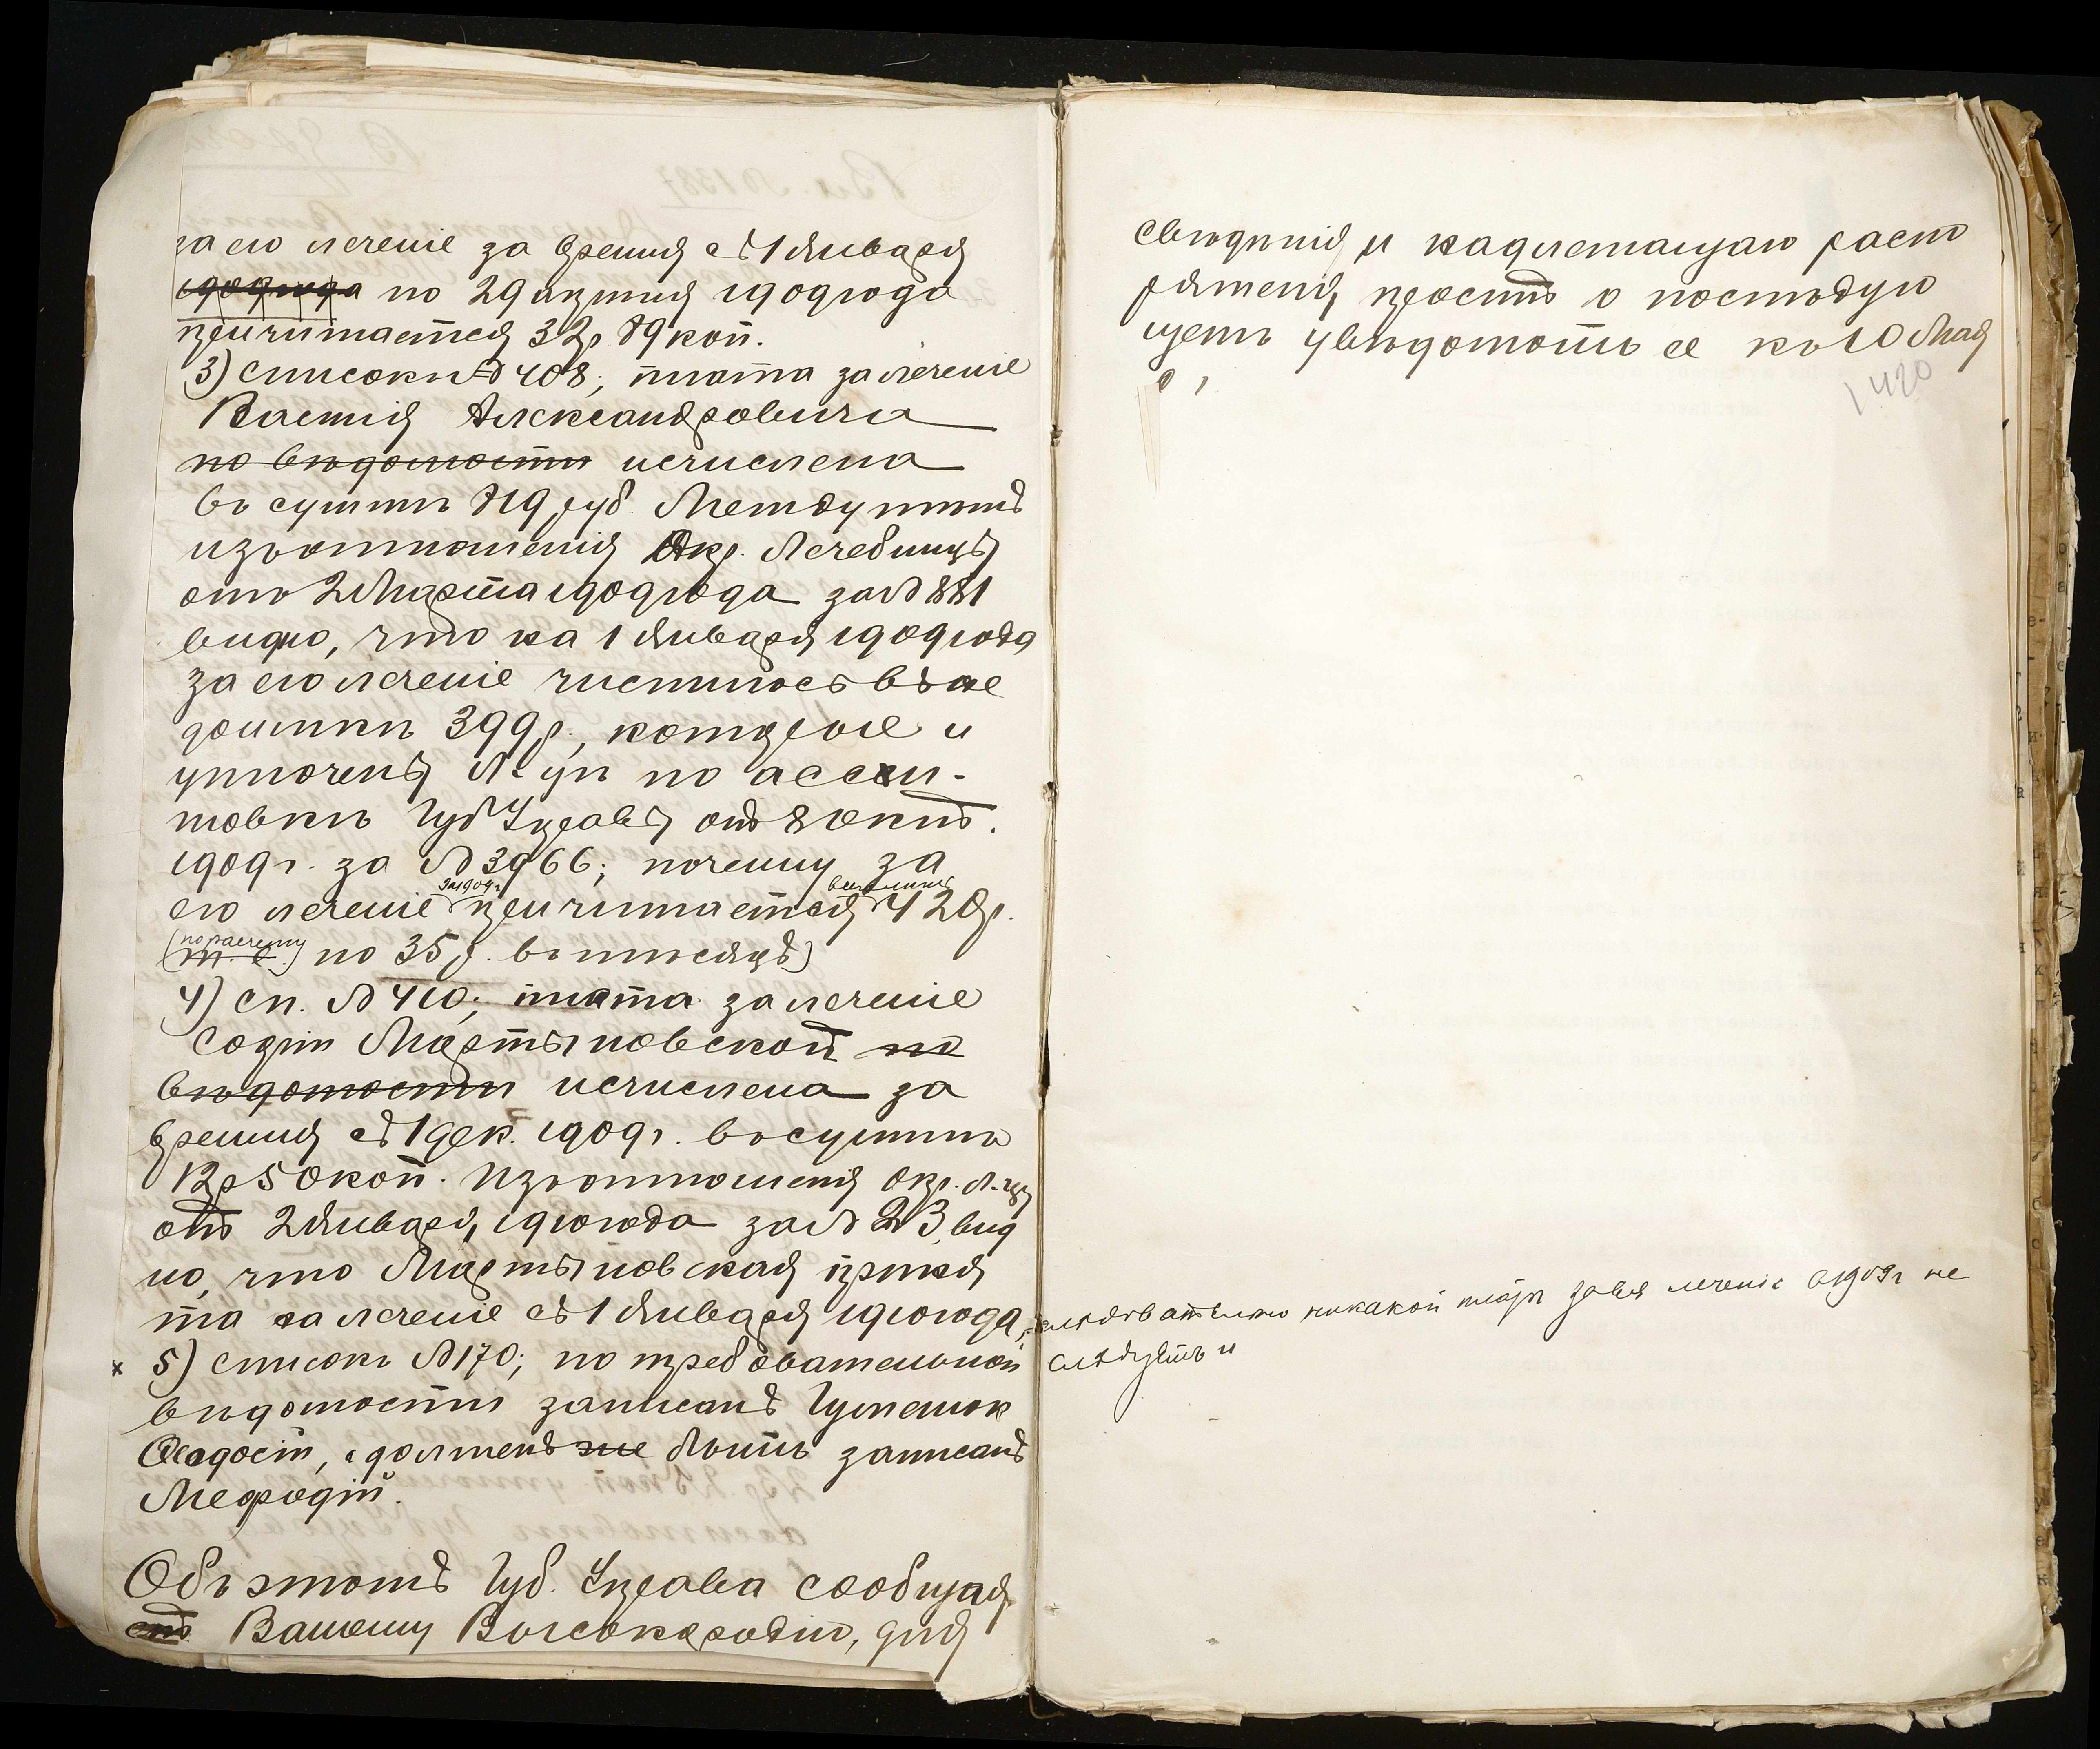 за его леченіе за время съ 1 Января
1909 года по 29 апрѣля 1909 года
причитается 32 р 89 коп.
3) Списокъ № 408; плата за леченіе
Александровича
по вѣдомости исчислена
въ суммѣ 819 руб. Между тѣмъ
изъ отношенія Окр. Лечебницы
отъ 2 Марта 1909 года за № 881
видно, что на 1 Января 1909 года
за его леченіе числилось въ не
доимкѣ 399 р., которые и
уплочены Л-цѣ по ассиг-
новкѣ Губ Управы отъ 8 Окт.
1909 г. за № 3966; почему за
его леченіе за 1909 г причитается 420 р.
(по расчету т. е. по 35 р. въ мѣсяцъ)
4) сп. № 410; плата за леченіе
Софіи Мартыновской по
вѣдомости исчислена за
время съ 1 дек. 1909 г. въ суммѣ
12 р 50 коп. Изъ отношенія Окр. Л-цы
отъ 2 Января 1910 года за № 23, вид
но, что Мартыновская приня
та на леченіе съ 1 Января 1910 года,
слѣдовательно никакой платы за ея леченіе въ 1909 г не
слѣдуетъ и
х 5) списокъ № 170; по требовательной
вѣдомости записанъ Гуменюк
Феодосій, а долженъ же быть записанъ
Мефодій.
Объ этомъ Губ. Управа сообщая
етъ Вашему Высокородію, для
свѣдѣнія и надлежащаго распо
ряженія, проситъ о послѣдую
щемъ увѣдомить ее къ 10 Мая
1420